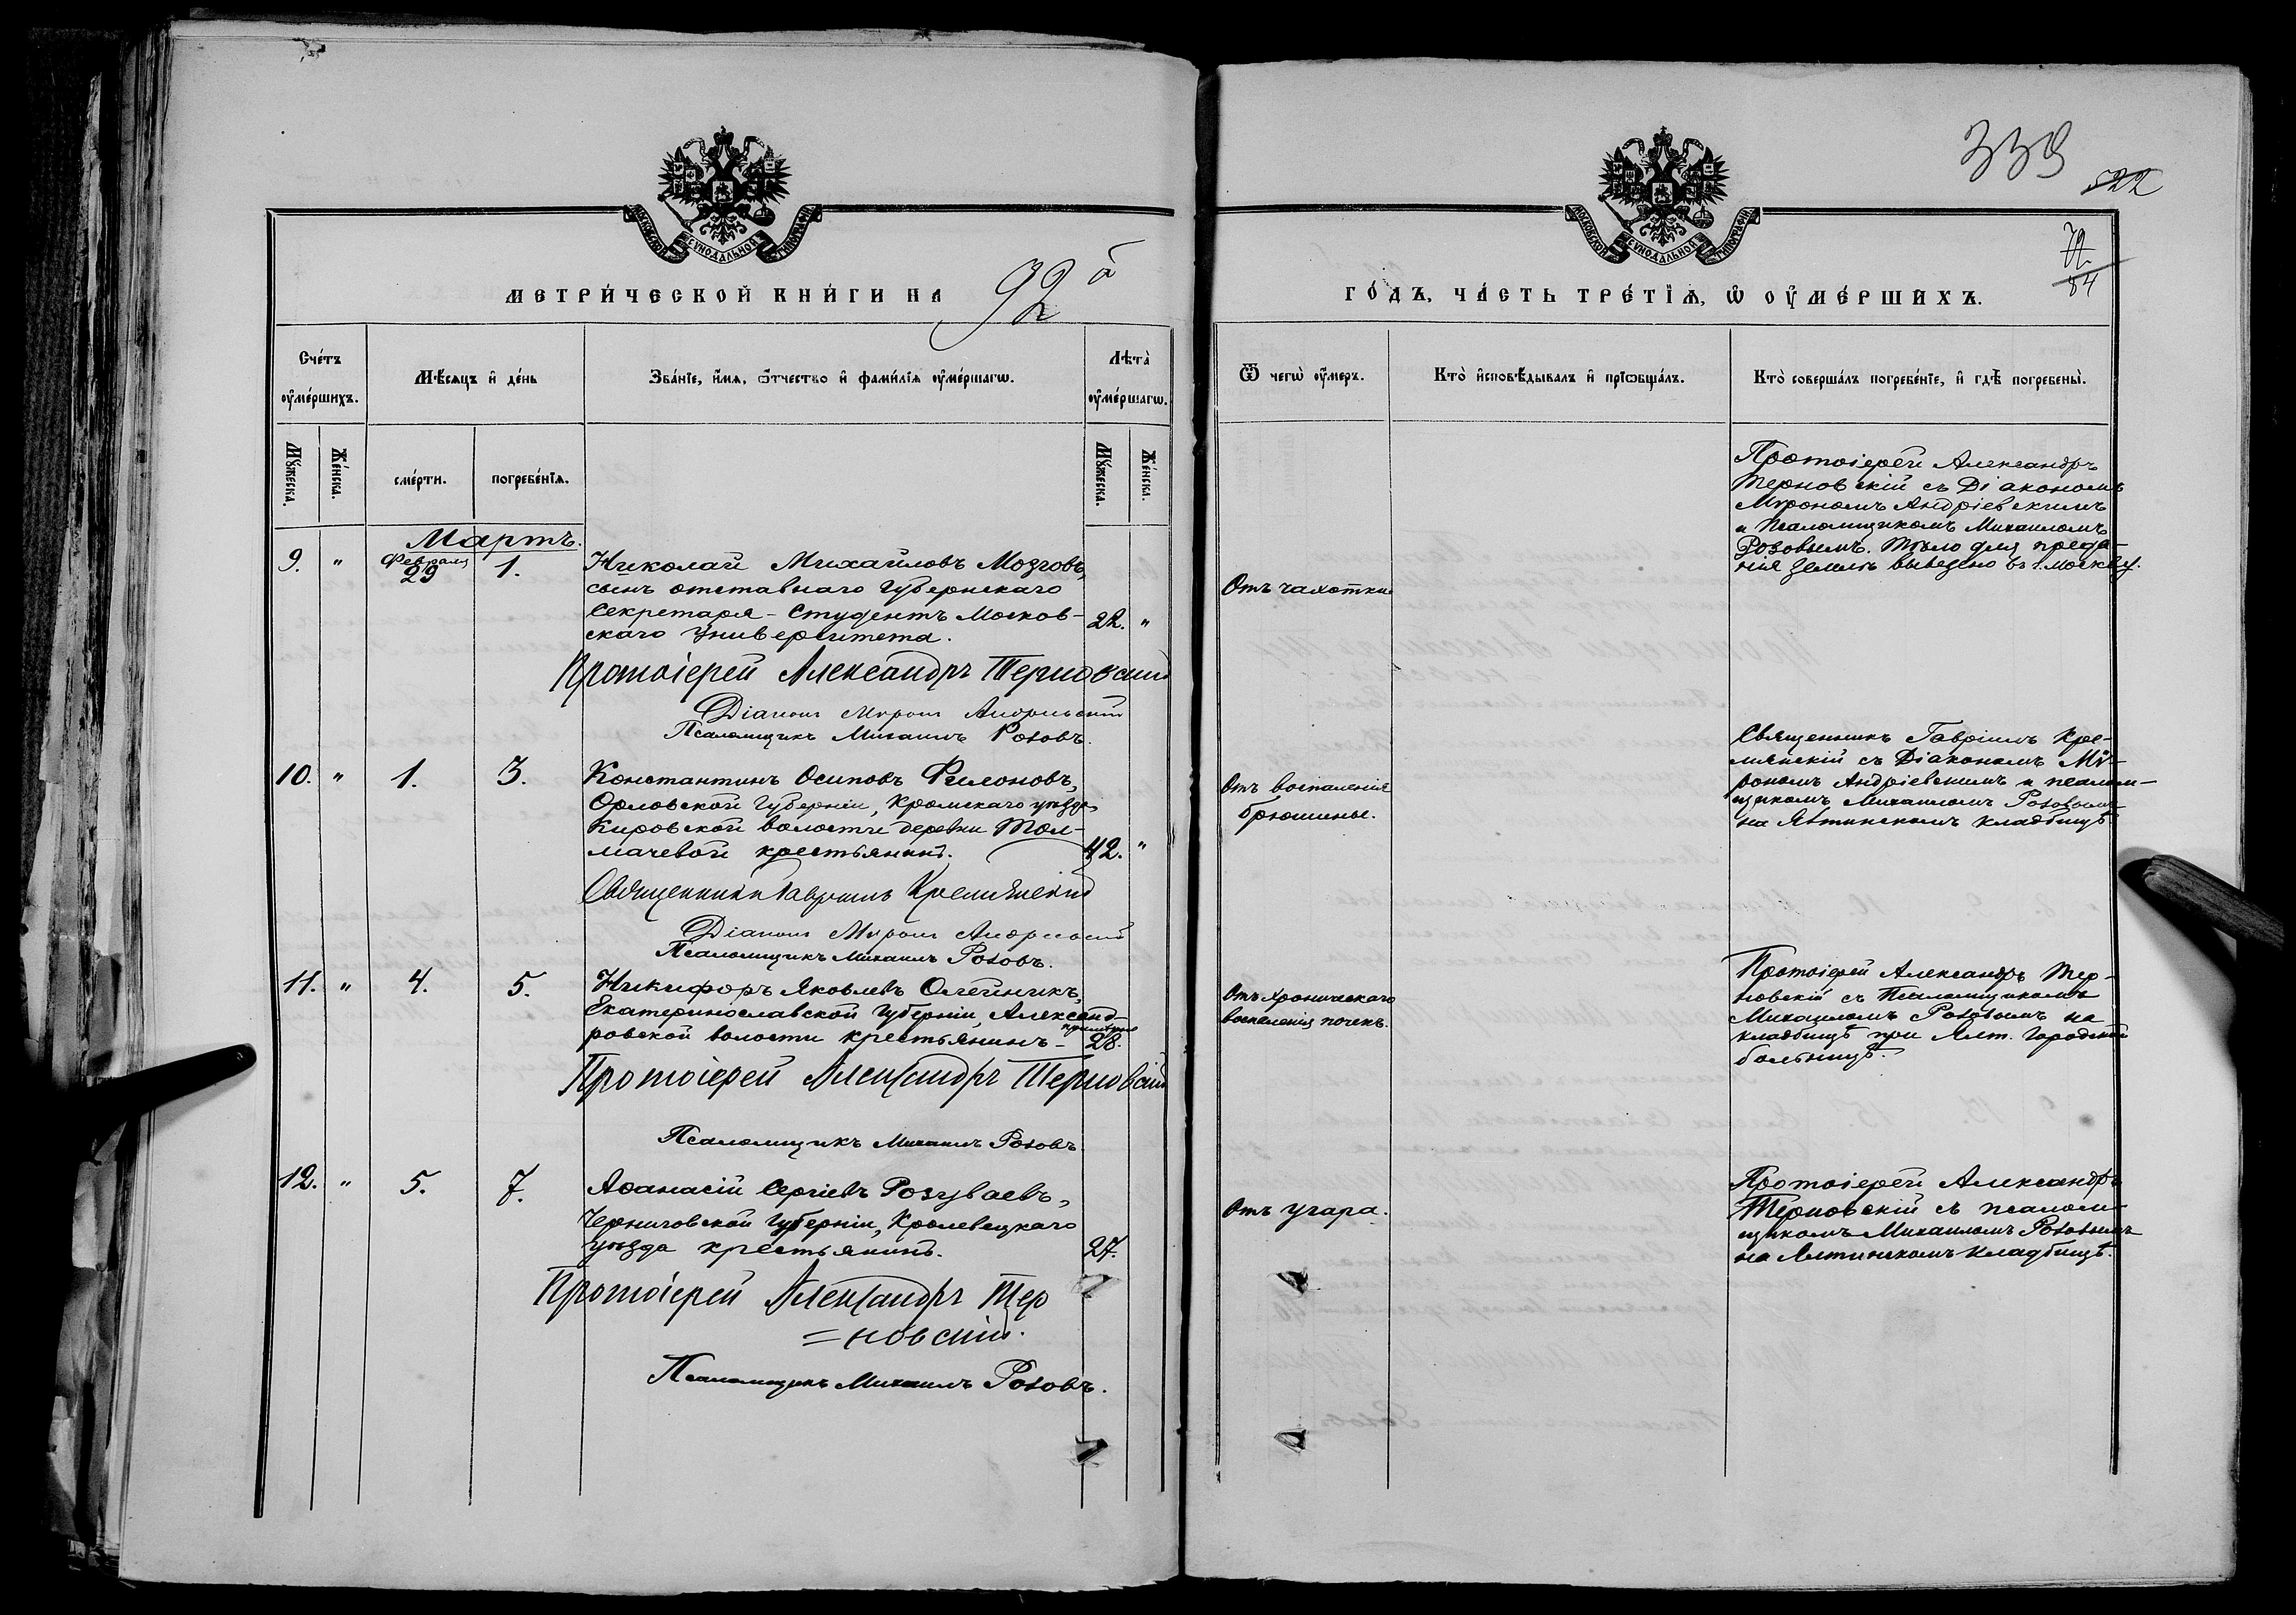 МОСКОВСКОЙ СУНОДАЛЬНОЙ ТИПОГРАФІИ
МЕТРИЧЕСКОЙ КНИГИ НА 92 й
Счетъ оумершихъ.
Мѣсяцъ и день
Званіе, имя, ѿчество и фамилія оумершагѡ.
Лѣта оумершагѡ.
Мужеска.
Женска.
смерти.
погребенія.
Мужеска.
Женска.
Мартъ.
9. " Февраля 29 1. Николай Михайловъ Мозговъ,
сынъ отставнаго Губернскаго
Секретаря - Студентъ Москов-
скаго Университета. 22. "
Протоіерей Александръ Терновскій
Діаконъ Мѵронъ Андріевскій
Псаломщикъ Михаилъ Розовъ.
10. " 1. 3. Константинъ Осиповъ Филоновъ,
Орловской Губерніи, Кромскаго уѣзда,
Кировской волости деревни Тол-
мачевой крестьянинъ. 42. "
Священникъ Гавріилъ
Діаконъ Мѵронъ Андріевскій
Псаломщикъ Михаилъ Розовъ.
11. " 4. 5. Никифоръ Яковлевъ Олейникъ,
Екатеринославской Губерніи, Александ-
ровской волости крестьянинъ - 28.
Протоіерей Александръ Терновскій
Псаломщикъ Михаилъ Розовъ.
12. " 5. 7. Аѳанасій Сергіевъ Розуваевъ,
Черниговской Губерніи, Кролевецкаго
уѣзда крестьянинъ. 27.
Протоіерей Александръ Тер
=новскій.
Псаломщикъ Михаилъ Розовъ.
339
522
72
84
МОСКОВСКОЙ СУНОДАЛЬНОЙ ТИПОГРАФІИ
ГОДЪ, ЧАСТЬ ТРЕТІЯ, Ѡ ОУМЕРШИХЪ.
Ѿ чегѡ оумеръ.
Кто исповѣдывалъ и пріѡбщалъ.
Кто совершалъ погребеніе, и гдѣ погребены.
Отъ чахотки
Протоіерей Александръ
Терновскій съ Діакономъ
Мѵрономъ Андріевскимъ
и Псаломщикомъ Михаиломъ
Розовымъ. Тѣло для преда-
нія землѣ вывезено въ г. Москву.
Отъ воспаленія
брюшины.
Священникъ Гавріилъ
съ Діакономъ Мѵ-
рономъ Андріевскимъ и псалом-
щикомъ Михаиломъ Розовымъ
на Ялтинскомъ кладбищѣ.
Отъ хроническаго
воспаленія почекъ.
Протоіерей Александръ Тер-
новскій съ Псаломщикомъ
Михаиломъ Розовымъ на
кладбищѣ при Ялт. городской
больницѣ.
Отъ угара.
Протоіерей Александръ
Терновскій съ псалом-
щикомъ Михаиломъ Розовымъ
на Ялтинскомъ кладбищѣ.